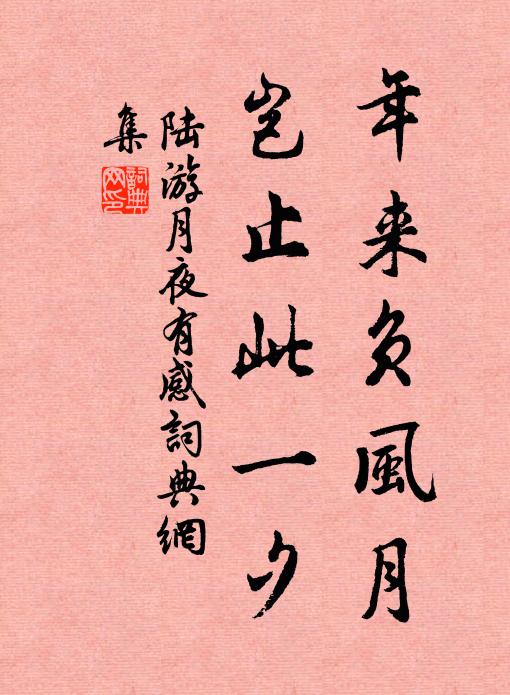 年来負風月
岂止此一夕
陆游月夜有感詞典網
集
詞典
网印